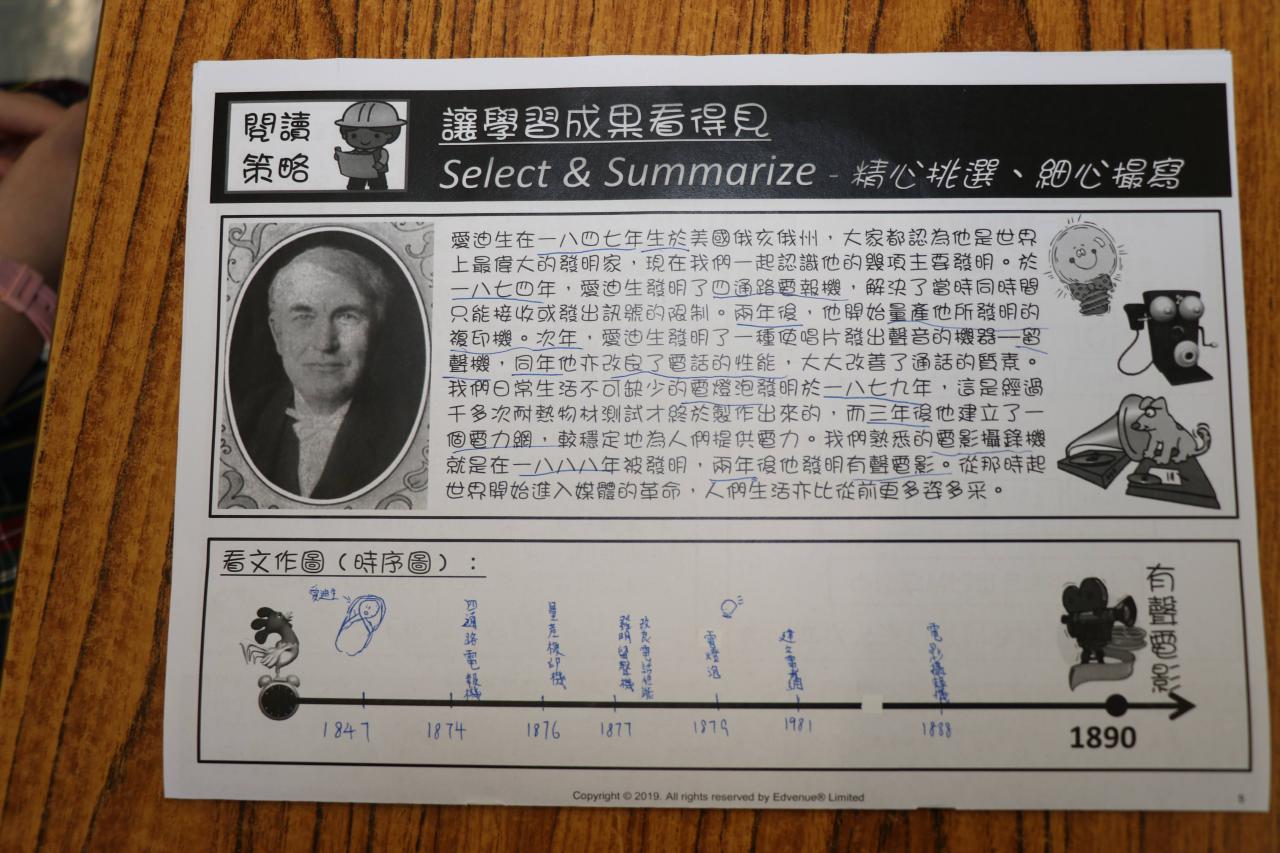 閱讀
策略
讓學習成果看得見
Select & Summarize - 精心挑選、細心撮寫
愛迪生在一八四七年生於美國俄亥俄州，大家都認為他是世界
上最偉大的發明家，現在我們一起認識他的幾項主要發明。於
一八七四年，愛迪生發明了四通路電報機，解決了當時同時間
只能接收或發出訊號的限制。兩年後，他開始量產他所發明的
複印機。次年，愛迪生發明了一種使唱片發出聲音的機器—留
聲機，同年他亦改良了電話的性能，大大改善了通話的質素。
我們日常生活不可缺少的電燈泡發明於一八七九年，這是經過
千多次耐熱物材測試才終於製作出來的，而三年後他建立了一
個電力網，較穩定地為人們提供電力。我們熟悉的電影攝錄機
就是在一八八八年被發明，兩年後他發明有聲電影。從那時起
世界開始進入媒體的革命，人們生活亦比從前更多姿多采。
看文作圖（時序圖）：
愛迪生
四通路電報機
量產複印機
發明留聲機
改良電話性能
電燈泡
建立電力網
電影攝錄機
有聲電影
1847
1874
1876
1877
1879
1981
1888
1890
Copyright © 2019. All rights reserved by Edvenue® Limited